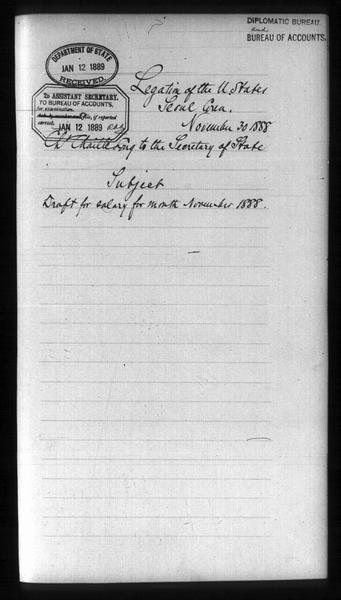 DIPLOMATIC BUREAU.
and
BUREAU OF ACCOUNTS.
DEPARTMENT OF STATE
JAN 12 1889
RECEIVED
To ASSISTANT SECRETARY.
TO BUREAU OF ACCOUNTS,
for examination.
if reported
correct.
JAN 12 1889
Legation of the U. States
Seoul Corea.
November 30 1888
Chaillé Long to the Secretary of State
Subject
Draft for salary for month November 1888.